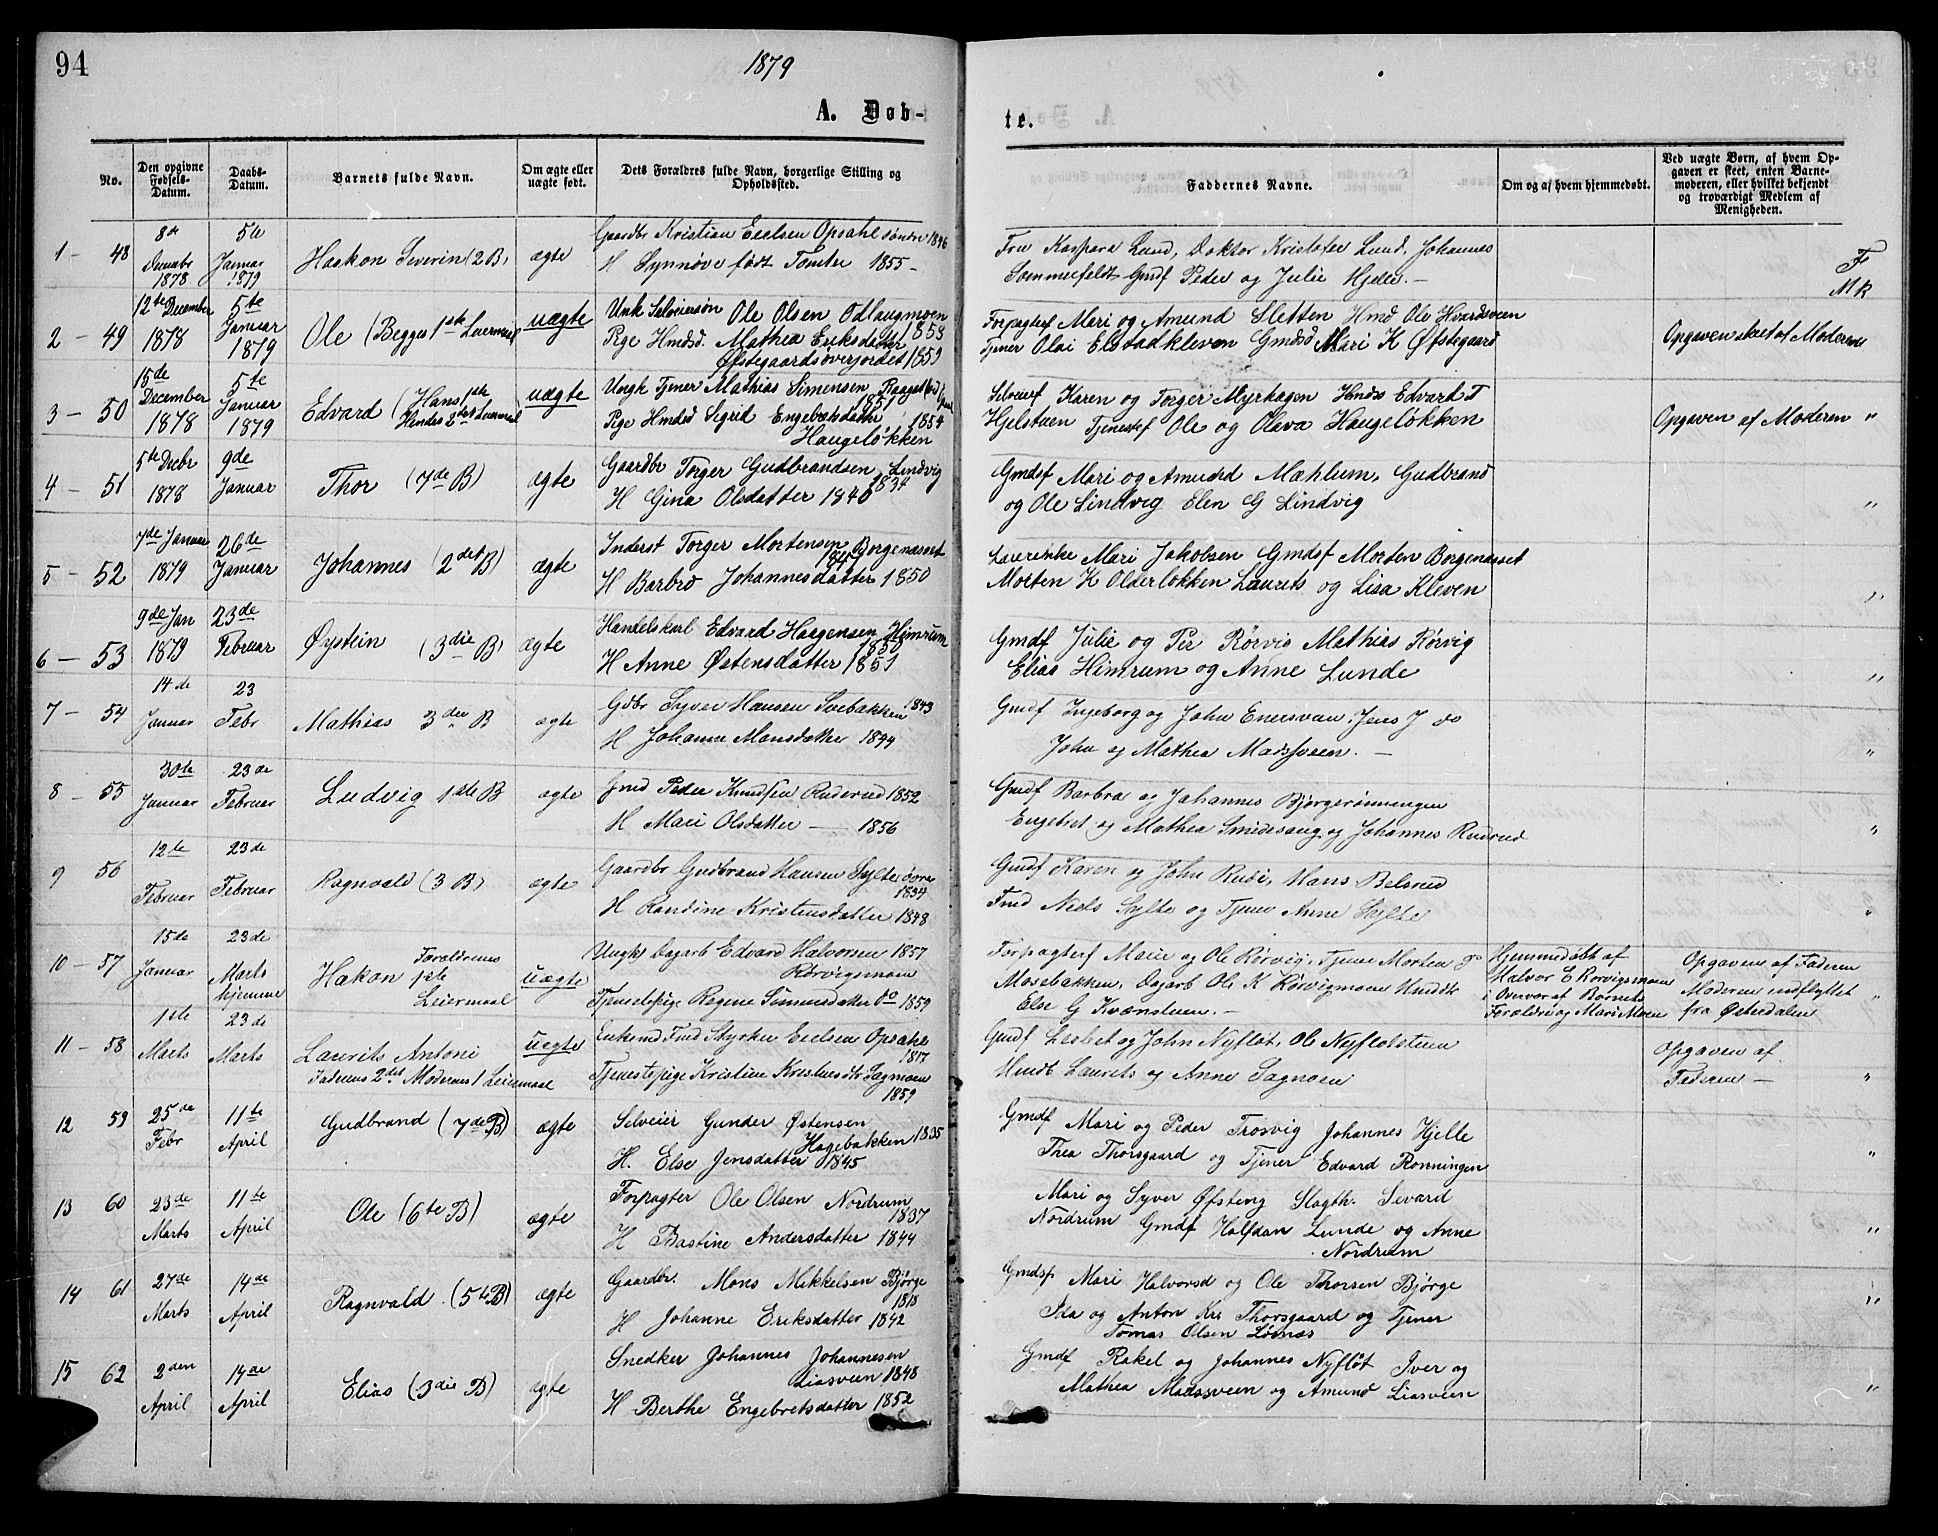 94
1879
A. Døb-
te.
No.
Den opgivne Fødsels-Datum.
Daabs-Datum.
Barnets fulde Navn.
Om ægte eller uægte født.
Dets Forældres fulde Navn, borgerlige Stilling og Opholdssted.
Faddernes Navne.
Om og af hvem hjemmedøbt.
Ved uægte Børn, af hvem Op-
gaven er skeet, enten Barne-
moderen, eller hvilket bekjendt
og troværdigt Medlem af
Menigheden.
1 - 48
8de Decembr 1878
5te Januar 1879
Haakon Severin (2 B)
ægte
Gaardbr Kristian Eielsen Opsahl søndre 1846
H Synnøve født Tomter 1855 -
Fru Kaspara Lund, Doktor Kristofer Lund, Johannes
Sommerfeldt Gmdf Peder og Julie Hjelle. -
F
MK
2 - 49
12te December 1878
5te Januar 1879
Ole (Begges 1ste Leiermaal
uægte
Unk Selveiersøn Ole Olsen Odlaugmoen 1853
Pige Hmdsd. Mathea Eriksdatter
Øfstegaardsoverjordet 1859
Forpagterf Mari og Amund Sletten Hmd Ole Hvardsveen
Tjener Olai Elstadkleven Gmdsd Mari K Øfstegaard
Opgaven skeet af Moderen
3 - 50
15de December 1878
5te Januar 1879
Edvard (Hans 1ste Hendes 2det Leiermaal
uægte
Ungk Tjener Mathias Simensen 1851
Pige Hmdsd Sigrid Engebretsdatter 1854
Haugeløkken
Selveierf Karen og Torger Myrhagen Hmds Edvard T
Hjelstuen Tjenestef Ole og Olava Haugeløkken
Opgaven af Moderen "
4 - 51
5te Decbr 1878
9de Januar
Thor (7de B)
ægte
Gaardbr Torger Gudbrandsen Lindvig 1834
H Gina Olsdatter 1840
Gmdsf Mari og Amund Mæhlum, Gudbrand
og Ole Lindvig Elen G Lindvig
"
5 - 52
7de Januar 1879
26de Januar
Johannes (2det B)
ægte
Inderst Torger Mortensen Borgenæsset
H Barbro Johannesdatter 1850
Mari Jakobsen Gmdsf Morten Borgenæsset
Morten K Olderløkken Laurits og Lisa Kleven
"
6 - 53
9de Jan 1879
23de Februar
Øystein (3die B)
ægte
Handelskarl Edvard Haagensen Himrum 1850
H Anne Østensdatter 1851
Gmdf Julie og Per Rørvig Mathias Rørvig
Elias Himrum og Anne Lunde
"
7 - 54
14de Januar
23 Febr
Mathias 3die B
ægte
Gdbr Syver Hansen Svebakken 1843
H Johanne Monsdatter 1844
Gmdf Ingeborg og John Enersveen, Jens J do
John og Mathea Madssveen. -
"
8 - 55
30te Januar
23de Februar
Ludvig 1ste B
ægte
Gmd Peder Knudsen Ruderud 1852
H Mari Olsdatter - 1856
Gmdf Barbra og Johannes Bjørgerønningen
Engebret og Mathea Smidesang og Johannes Ruderud
"
9 56
12te Februar
23de Februar
Ragnvald (3 B)
ægte
Gaardbr Gudbrand Hansen Sylte øvre 1834
H Randine Kristensdatter 1848
Gmdf Karen og John Rudi, Hans Belsrud
Fmd Niels Sylte og Tjener Anne Sylte
"
10 - 57
15de Januar
23de Marts hjemme
Hakon Forældrenes 1ste Leiermaal
uægte
Ungk Dagarb Edvard Halvorsen 1857
Rørvigsmoen
Tjenestepige Regine Simensdatter do 1859
Forpagterf Marie og Ole Rørvig, Tjener Morten T
Mosebakken, Dagarb Ole K Rørvigmoen
Else G Kvænstuen. -
Hjemmedøbt af
Halvor E Rørvigsmoen
i Overvær af Barnets
Forældre og Mari Moen
Opgaven af Faderen
Moderen indflyttet
fra Østerdalen
"
11 - 58
1ste Marts
23de Marts
Laurits Antoni
Faderens 2det Moderens 1 Leiermaal
uægte
Enkemd Fmd Styrker Eielsen Opsahl 1817
Tjenestepige Kristine Kristensdtr Sagmoen 1859
Gmdf Lesbet og John Nyfløt, Ole Nyfløtstuen
Laurits og Anne Sagmoen
Opgaven af
Faderen - "
12 59
25de Febr
11te April
Gudbrand (7de B)
ægte
Selveier Gunder Østensen
Hagebakken 1835
H. Else Jensdatter 1845
Gmdf Mari og Peder Trosvig Johannes Hjelle
Thea Thorsgaard og Tjener Edvard Rønningen
"
13 60
23de Marts
11te April
Ole (6te B)
ægte
Forpagter Ole Olsen Nordrum 1837
H Bastine Andersdatter 1844
Mari og Syver Øfsteng Slagth. Sevard
Nordrum Gmdf Halfdan Lunde og Anne
Nordrum
"
14 61
27de Marts
14de April
Ragnvald. (5te B)
ægte
Gaardbr. Mons Mikkelsen Bjørge 1818
H Johanne Eriksdatter 1842
Gmdsf Mari Halvorsd og Ole Thorsen Bjørge
Ida og Anton Krs Thorsgaard og Tjener
Tomas Olsen Løsnæs
"
15 62
2den April
14de April
Elias (3die B)
ægte
Snedker Johannes Johannesen
Liasveen 1848
H Berthe Engebretsdatter 1852
Gmdf Rakel og Johannes Nyfløt Iver og
Mathea Madssveen og Amund Liasveen
"